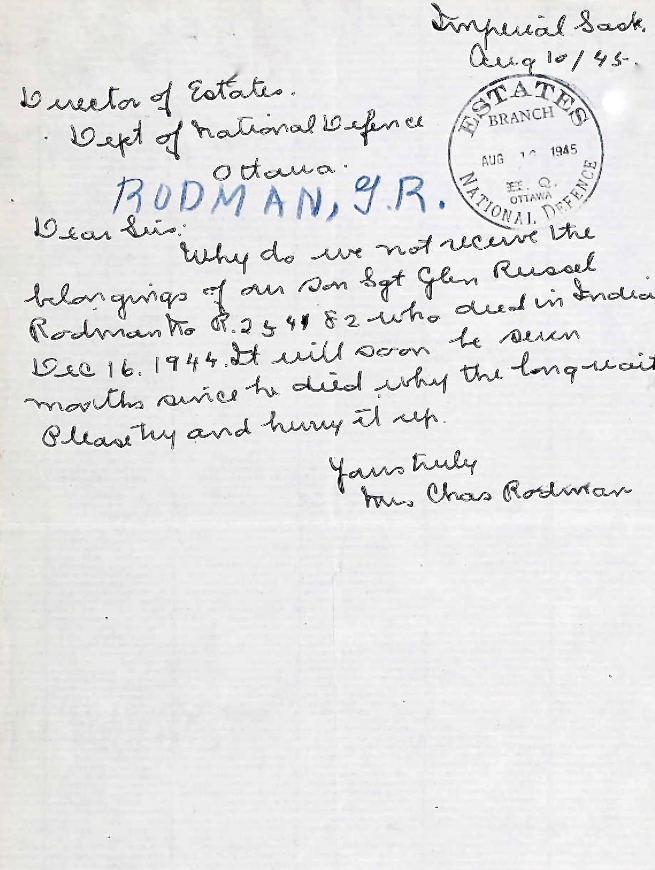 Imperial Sask.
Aug 10/45.
Director of Estates.
Dept of National Defence
Ottawa.
ESTATES
BRANCH
AUG 1 1945
H. Q.
OTTAWA
NATIONAL DEFENCE
RODMAN, G.R.
Dear Sirs:
Why do we not receive the
belongings of our son Sgt Glen Russel
Rodman No R.254182 who died in India
Dec 16. 1944. It will soon be seven
months since he died why the long wait
Please try and hurry it up.
Yours truly
Mrs Chas Rodman